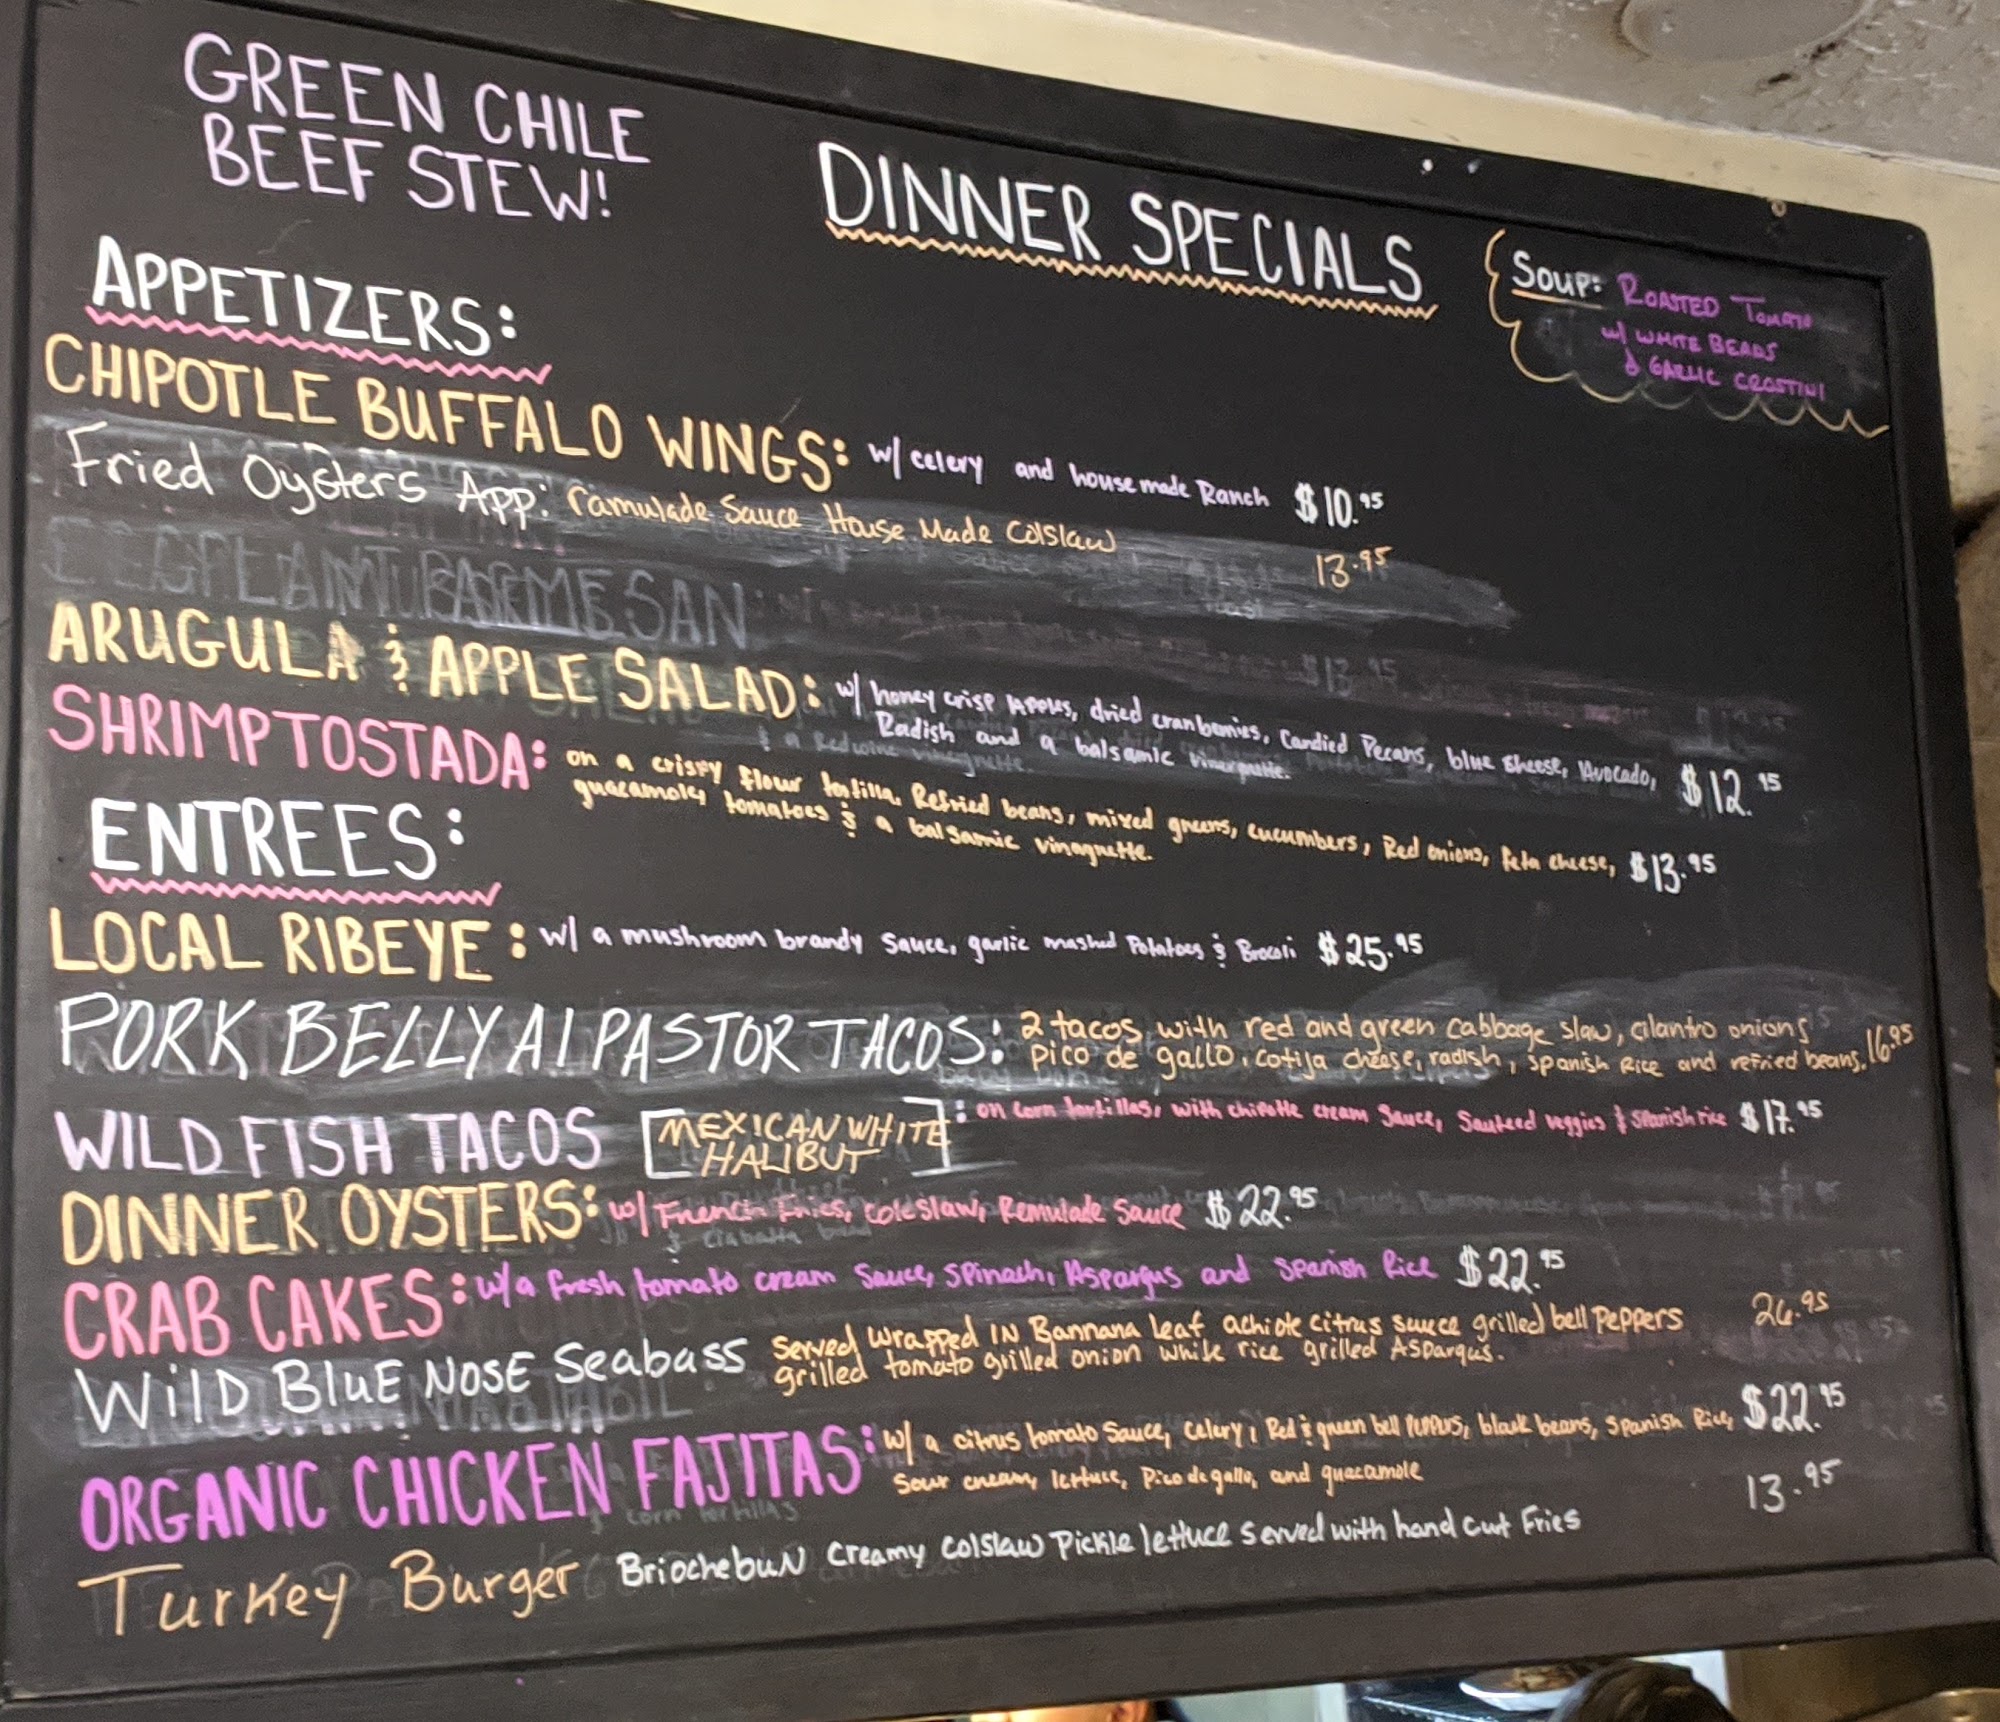 GREEN CHILE
BEEF STEW!
DINNER SPECIALS
SOUP: ROASTED TOMATO
w/ WHITE BEANS
& GARLIC CROSTINI
APPETIZERS:
CHIPOTLE BUFFALO WINGS: w/ celery and housemade Ranch $10.95
Fried Oysters App: ramulade Sauce House Made Colslaw 13.95
EGGPLANT PARMESAN
ARUGULA & APPLE SALAD: w/ honey crisp Apples, dried cranberries, Candied Pecans, blue cheese, Avocado, $12.95
Radish and a balsamic vinaigrette.
SHRIMP TOSTADA: on a crispy flour tortilla, Refried beans, mixed greens, cucumbers, Red onions, feta cheese, $13.95
guacamole, tomatoes & a balsamic vinagrette.
ENTREES:
LOCAL RIBEYE: w/ a mushroom brandy Sauce, garlic mashed Potatoes & Brocoli $25.95
PORK BELLY Al PASTOR TACOS: 2 tacos with red and green cabbage slaw, cilantro onions
pico de gallo, cotija cheese, radish, spanish Rice and refried beans. 16.95
WILD FISH TACOS [MEXICAN WHITE HALIBUT]: on corn tortillas, with chipotle cream Sauce, Sauteed veggies & Spanish rice $17.95
DINNER OYSTERS: w/ French Fries, coleslaw, Remulade Sauce $22.95
CRAB CAKES: w/ a fresh tomato cream Sauce, Spinach, Aspargus and Spanish Rice $22.95
WilD BluE NOSE Seabass Served Wrapped IN Bannana leaf achiote citrus sauce grilled bell Peppers 26.95
grilled tomato grilled onion white rice grilled Aspargus.
ORGANIC CHICKEN FAJITAS: w/ a citrus tomato Sauce, Celery, Red & green bell peppers, black beans, Spanish Rice, $22.95
Sour cream, lettuce, Pico de gallo, and guacamole
Turkey Burger BriochebuN Creamy Colslaw Pickle lettuce served with hand cut Fries 13.95